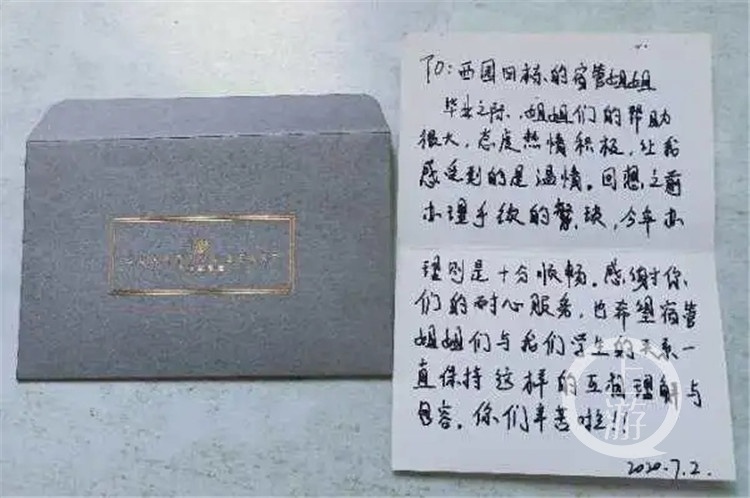 TO：西园四栋的宿管姐姐
毕业之际，姐姐们的帮助
很大，态度热情积极，让我
感受到的是温情。回想之前
办理手续的繁琐，今年办
理则是十分顺畅。感谢你
们的耐心服务，也希望宿管
姐姐们与我们学生的关系一
直保持这样的互相理解与
包容。你们辛苦啦！！
2020.7.2.
上游